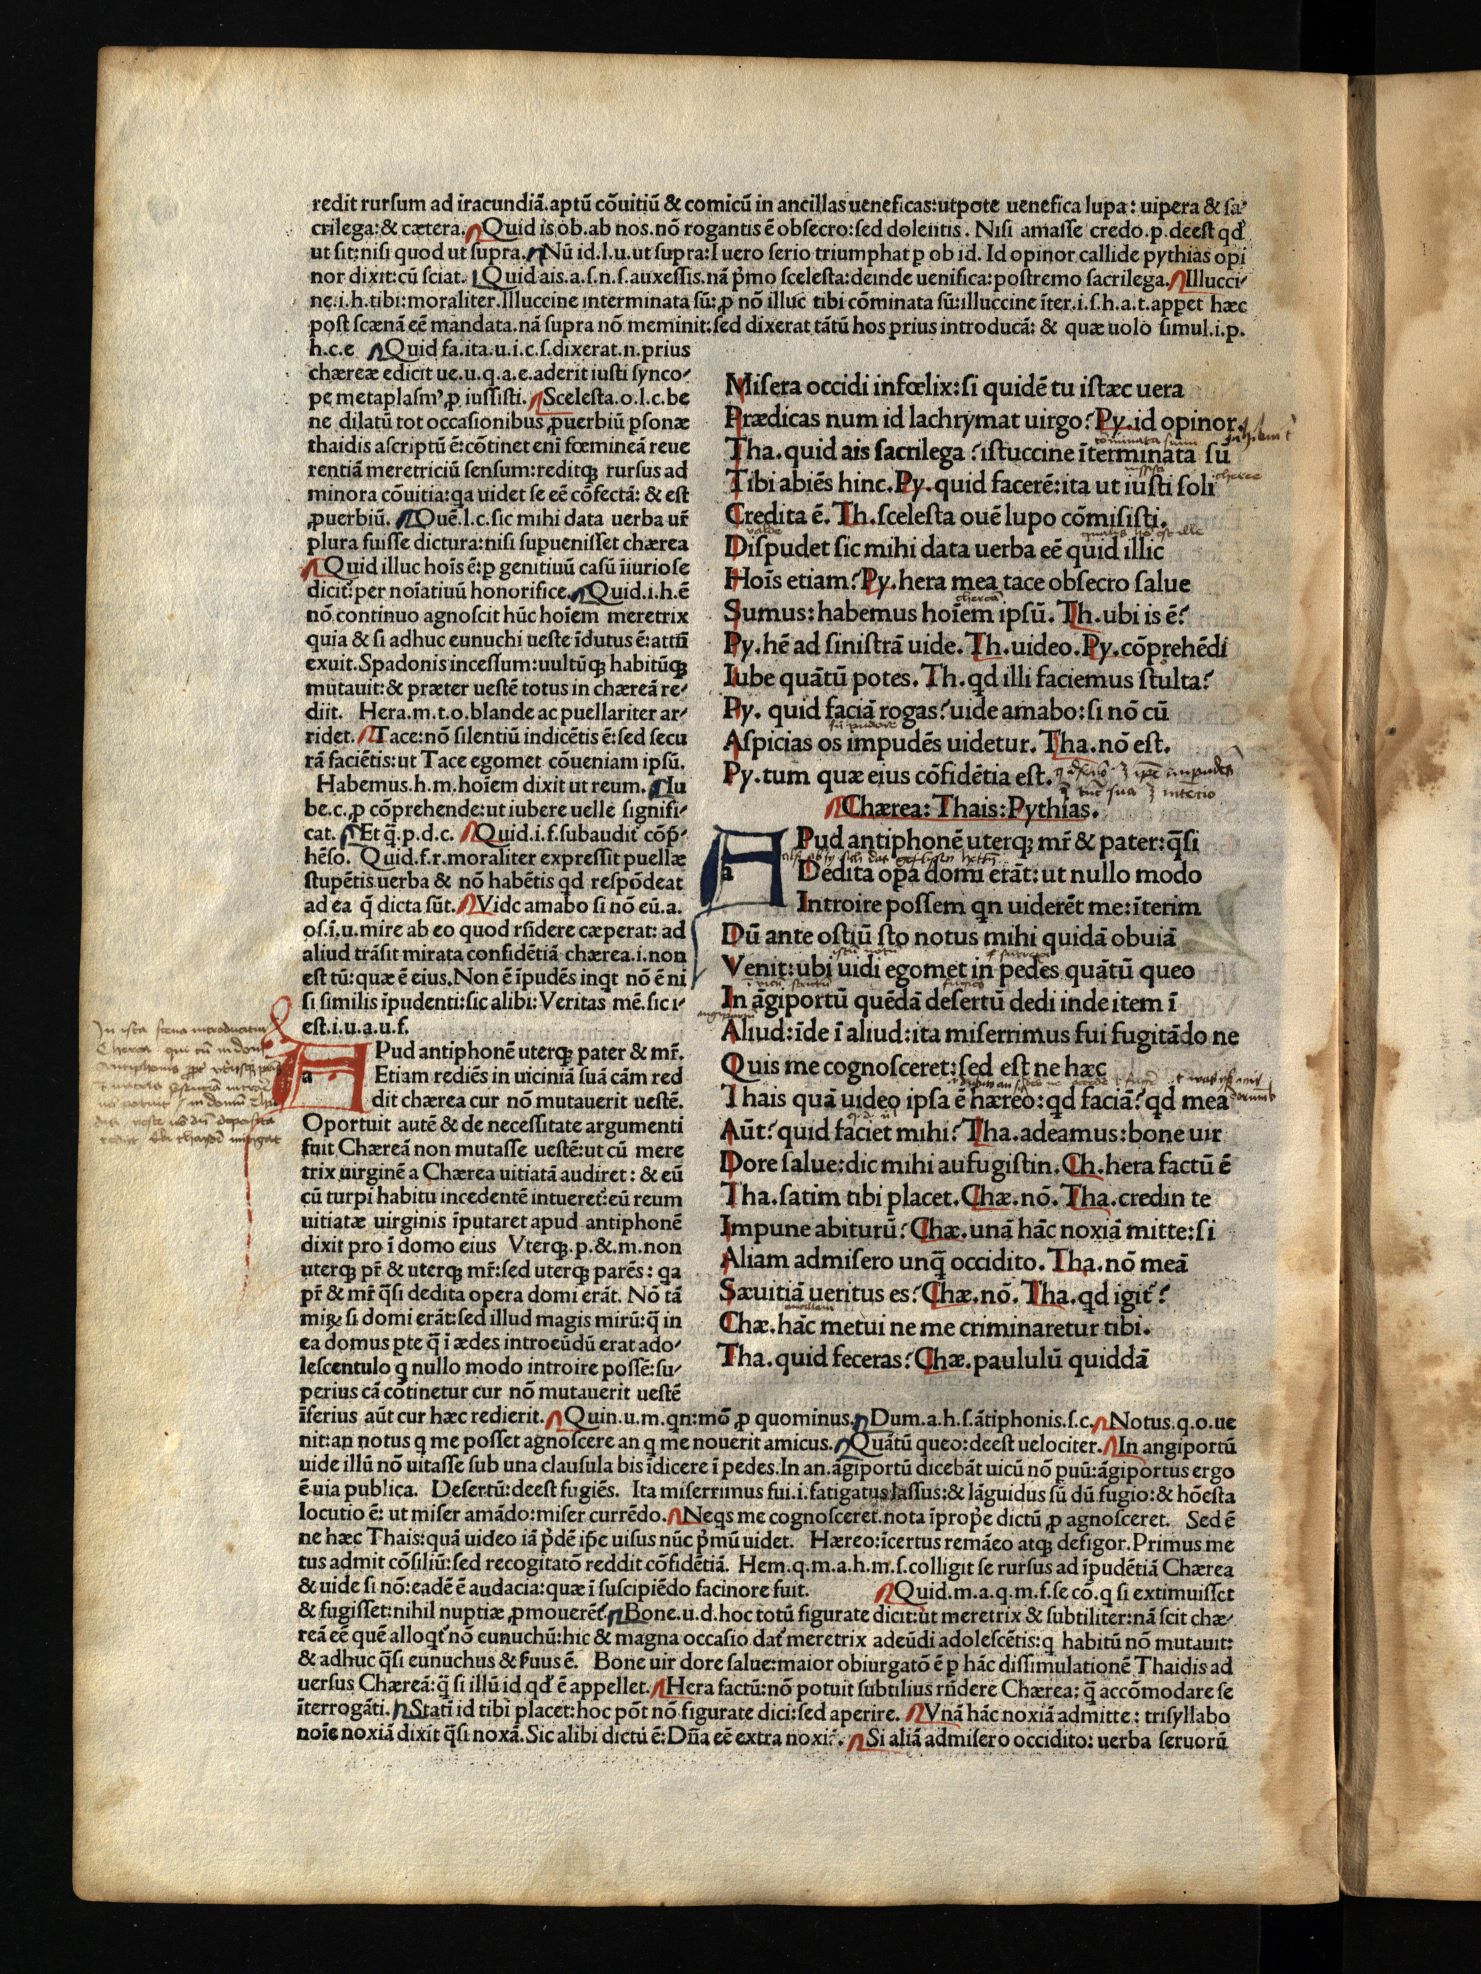 redit rursum ad iracundiã.aptũ cõuitiũ & comicũ in ancillas ueneficas:utpote uenefica lupa: uipera & sa-
crilega:& cætera. Quid is ob.ab nos.nõ rogantis ẽ obsecro:sed dolentis. Nisi amasse credo.p.deest qd
ut sit:nisi quod ut supra. Nũ id.l.u.ut supra:I uero serio triumphat ꝑ ob id. Id opinor callide pythias opi
nor dixit:cũ sciat. Quid ais.a.s.n.s.auxessis.nã p̃mo scelesta:deinde uenifica:postremo sacrilega. Illucci-
ne.i.h.tibi:moraliter.Illuccine interminata sũ:ꝓ nõ illuc tibi cõminata sũ:illuccine ĩter.i.s.h.a.t.appet hæc
post scænã eẽ mandata.nã supra nõ meminit:sed dixerat tãtũ hos prius introducã: & quæ uolo simul.i.p.
h.c.e Quid fa.ita.u.i.c.s.dixerat.n.prius
chæreæ edicit ue.u.q.a.e.aderit iusti synco-
pe metaplasmꝰ,ꝓ iussisti. Scelesta.o.l.c.be
ne dilatũ tot occasionibus ꝓuerbiũ ꝑsonæ
thaidis ascriptũ ẽ:cõtinet enĩ fœmineã reue
rentiã meretriciũ sensum:reditqꝫ rursus ad
minora cõuitia:qa uidet se eẽ cõfectã: & est
ꝓuerbiũ. Ouẽ.l.c.sic mihi data uerba ur̃
plura fuisse dictura:nisi supuenisset chærea
Quid illuc hoĩs ẽ:ꝑ genitiuũ casũ ĩiuriose
dicit̃:per noĩatiuũ honorifice. Quid.i.h.ẽ
nõ continuo agnoscit hũc hoĩem meretrix
quia & si adhuc eunuchi ueste ĩdutus ẽ:attñ
exuit.Spadonis incessum:uultũqꝫ habitũqꝫ
mutauit:& præter uestẽ totus in chæreã re-
diit. Hera.m.t.o.blande ac puellariter ar-
ridet. Tace:nõ silentiũ indicẽtis ẽ:sed secu
rã faciẽtis:ut Tace egomet cõueniam ipsũ.
Habemus.h.m.hoĩem dixit ut reum. Iu
be.c.ꝓ cõprehende:ut iubere uelle signifi-
cat. Et q̃.p.d.c. Quid.i.f.subaudit cõp̃-
hẽso. Quid.f.r.moraliter expressit puellæ
stupẽtis uerba & nõ habẽtis qd respõdeat
ad ea q̃ dicta sũt. Vide amabo si nõ eũ.a.
os.ĩ.u.mire ab eo quod rñdere cæperat: ad
aliud trãsit mirata confidẽtiã chærea.i.non
est tũ:quæ ẽ eius.Non ẽ ĩpudẽs inqt nõ ẽ ni
si similis ĩpudenti:sic alibi: Veritas mẽ.sic i-
est.i.u.a.u.f.
APud antiphonẽ uterqꝫ pater & mr̃.
Etiam rediẽs in uiciniã suã cãm red
dit chærea cur nõ mutauerit uestẽ.
Oportuit autẽ & de necessitate argumenti
fuit Chæreã non mutasse uestẽ:ut cũ mere
trix uirginẽ a Chærea uitiatã audiret: & eũ
cũ turpi habitu incedentẽ intueret̃:eũ reum
uitiatæ uirginis ĩputaret apud antiphonẽ
dixit pro ĩ domo eius Vterqꝫ.p.&.m.non
uterqꝫ pr̃ & uterqꝫ mr̃:sed uterqꝫ parẽs: qa
pr̃ & mr̃ q̃si dedita opera domi erãt. Nõ tã
miꝝ si domi erãt:sed illud magis mirũ:q̃ in
ea domus ꝑte q̃ ĩ ædes introeũdũ erat ado-
lescentulo q nullo modo introire possẽ:su-
perius cã cõtinetur cur nõ mutauerit uestẽ
ĩferius aũt cur hæc redierit. Quin.u.m.qn:mõ ꝓ quominus. Dum.a.h.s.ãtiphonis.s.c. Notus.q.o.ue
nit:an notus q me posset agnoscere an q me nouerit amicus. Quãtũ queo:deest uelociter. In angiportũ
uide illũ nõ uitasse sub una clausula bis ĩdicere ĩ pedes.In an.ãgiportũ dicebãt uicũ nõ puũ:ãgiportus ergo
ẽ uia publica. Desertũ:deest fugiẽs. Ita miserrimus fui.i.fatigatus lassus:& lãguidus sũ dũ fugio:& hõesta
locutio ẽ: ut miser amãdo:miser currẽdo. Neqs me cognosceret.nota ĩprop̃e dictũ ꝓ agnosceret. Sed ẽ
ne hæc Thais:quã uideo iã p̃dẽ ip̃e uisus nũc p̃mũ uidet. Hæreo:ĩcertus remãeo atqꝫ defigor.Primus me
tus admit cõsiliũ:sed recogitatõ reddit cõfidẽtiã. Hem.q.m.a.h.m.s.colligit se rursus ad ĩpudẽtiã Chærea
& uide si nõ:eadẽ ẽ audacia:quæ ĩ suscipiẽdo facinore fuit. Quid.m.a.q.m.f.se cõ.q si extimuisset
& fugisset:nihil nuptiæ ꝓmouerẽt̃. Bone.u.d.hoc totũ figurate dicit:ut meretrix & subtiliter:nã scit chæ-
reã eẽ quẽ alloqt̃ nõ eunuchũ:hic & magna occasio dat̃ meretrix adeũdi adolescẽtis:q habitũ nõ mutauit:
& adhuc q̃si eunuchus & suus ẽ. Bone uir dore salue:maior obiurgatõ ẽ ꝑ hãc dissimulationẽ Thaidis ad
uersus Chæreã:q̃ si illũ id qd ẽ appellet. Hera factũ:nõ potuit subtilius rñdere Chærea: q̃ accõmodare se
ĩterrogãti. Statĩ id tibi placet:hoc põt nõ figurate dici:sed aperire. Vnã hãc noxiã admitte: trisyllabo
noĩe noxiã dixit q̃si noxã.Sic alibi dictũ ẽ:Dña eẽ extra noxiã. Si aliã admisero occidito: uerba seruorũ
Misera occidi infœlix:si quidẽ tu istæc uera
Prædicas num id lachrymat uirgo? Py.id opinor.
Tha.quid ais sacrilega?istuccine ĩterminata sũ
Tibi abiẽs hinc.Py.quid facerẽ:ita ut iusti soli
Credita ẽ.Th.scelesta ouẽ lupo cõmisisti.
Dispudet sic mihi data uerba eẽ quid illic
Hoĩs etiam?Py.hera mea tace obsecro salue
Sumus:habemus hoĩem ipsũ.Th.ubi is ẽ?
Py.hẽ ad sinistrã uide.Th.uideo.Py.cõprehẽdi
Iube quãtũ potes.Th.qd illi faciemus stulta?
Py. quid faciã rogas?uide amabo:si nõ cũ
Aspicias os impudẽs uidetur.Tha.nõ est.
Py.tum quæ eius cõfidẽtia est.
Chærea: Thais:Pythias.
APud antiphonẽ uterqꝫ mr̃ & pater:q̃si
Dedita opa domi erãt:ut nullo modo
Introire possem qn uiderẽt me:ĩterim
Dũ ante ostiũ sto notus mihi quidã obuiã
Venit:ubi uidi egomet in pedes quãtũ queo
In ãgiportũ quẽdã desertũ dedi inde item ĩ
Aliud:ĩde ĩ aliud:ita miserrimus fui fugitãdo ne
Quis me cognosceret:sed est ne hæc
Thais quã uideo ipsa ẽ hæreo:qd faciã?qd mea
Aũt?quid faciet mihi?Tha.adeamus:bone uir
Dore salue:dic mihi aufugistin.Ch.hera factũ ẽ
Tha.satim tibi placet.Chæ.nõ.Tha.credin te
Impune abiturũ?Chæ.unã hãc noxiã mitte:si
Aliam admisero unq̃ occidito.Tha.nõ meã
Sæuitiã ueritus es?Chæ.nõ.Tha.qd igit̃?
Chæ.hãc metui ne me criminaretur tibi.
Tha.quid feceras?Chæ.paululũ quiddã